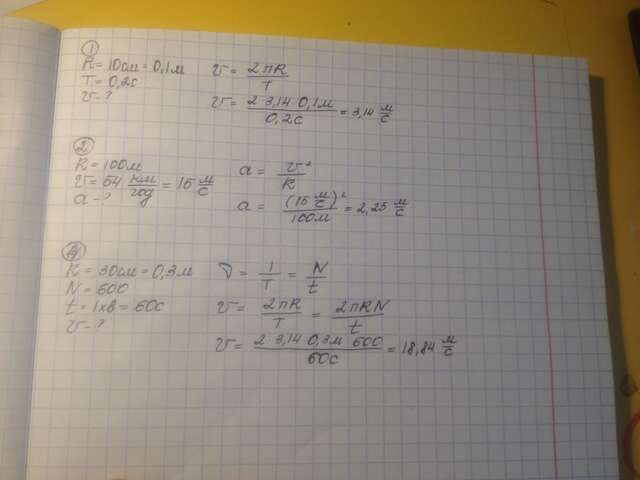 ①
R = 10см = 0,1м
T = 0,2с
v - ?
v = 2πR / T
v = 2 3,14 0,1м / 0,2с = 3,14 м/с
②
R = 100м
v = 54 км/час = 15 м/с
a - ?
a = v² / R
a = (15 м/с)² / 100м = 2,25 м/с
③
R = 30см = 0,3м
N = 600
t = 1хв = 60с
v - ?
ν = 1/T = N/t
v = 2πR / T = 2πRN / t
v = 2 3,14 0,3м 600 / 60с = 18,84 м/с